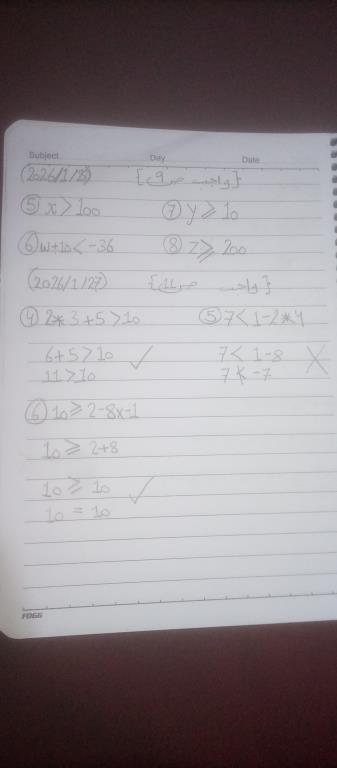 Subject Day Date
(2026/1/27) [واجب ص9]
⑤ x > 100 ⑦ y ⩾ 10
⑥ w+10 < -36 ⑧ z ⩾ 200
(2026/1/27) [واجب ص11]
④ 2*3+5>10 ⑤ 7<1-2*4
6+5>10 ✓ 7<1-8 ✗
11>10 7≮-7
⑥ 10⩾2-8x-1
10⩾2+8
10⩾10 ✓
10=10
FOGG